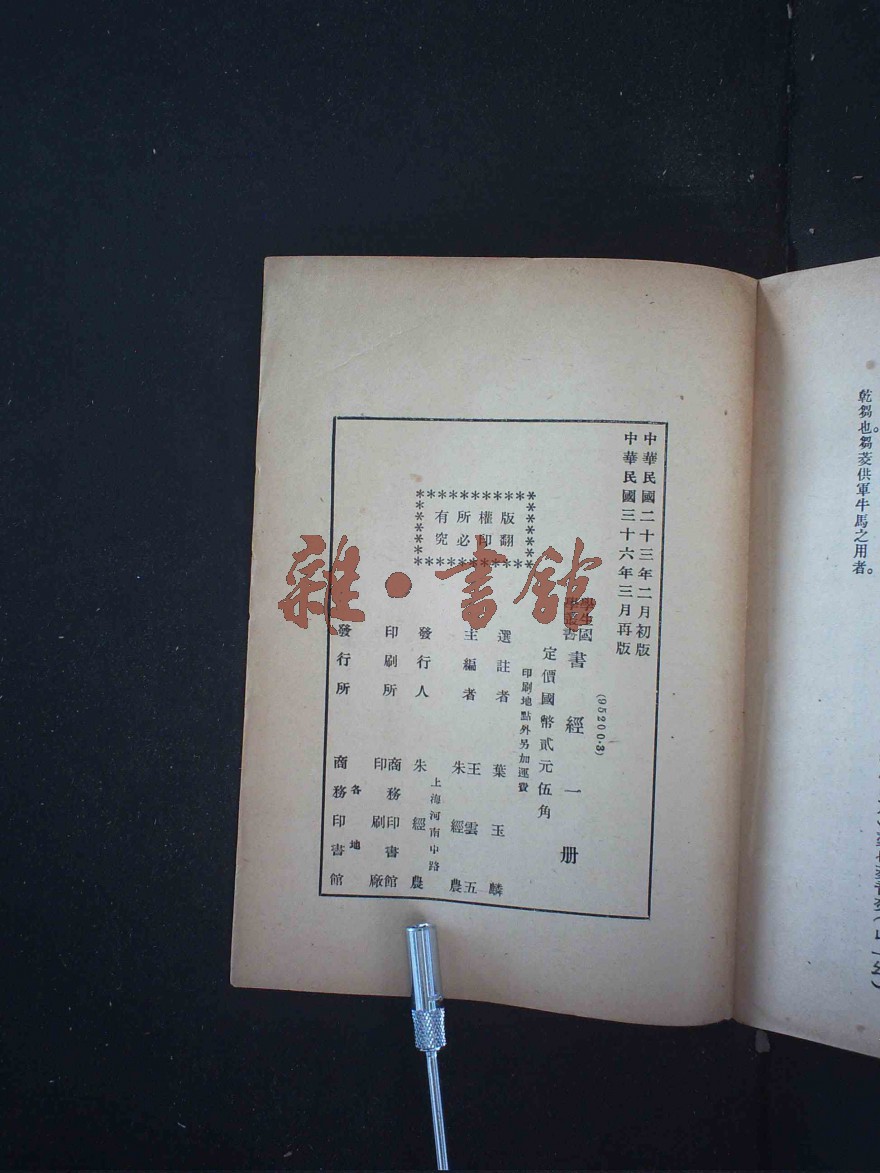 乾芻也。芻茭供軍牛馬之用者。
中華民國二十三年二月初版
中華民國三十六年三月再版
(95200·3)
學生國學叢書
書經一册
定價國幣貳元伍角
印刷地點外另加運費
版權所有
翻印必究
選註者 葉玉麟
主編者 王雲五
朱經農
上海河南中路
發行人 朱經農
印刷所 商務印書館
印刷廠
各地
發行所 商務印書館
雜·書館